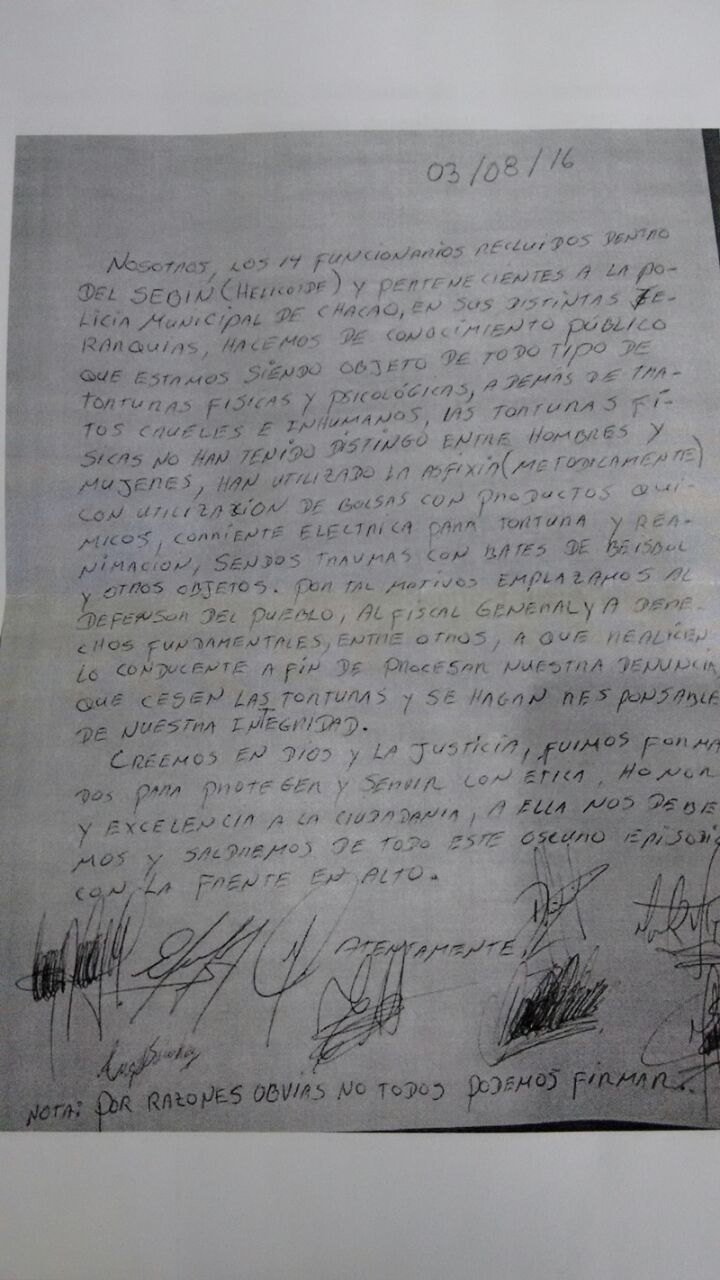 03/08/16
NOSOTROS, LOS 14 FUNCIONARIOS RECLUIDOS DENTRO
DEL SEBIN (HELICOIDE) Y PERTENECIENTES A LA PO-
LICIA MUNICIPAL DE CHACAO, EN SUS DISTINTAS JE-
RARQUIAS, HACEMOS DE CONOCIMIENTO PÚBLICO
QUE ESTAMOS SIENDO OBJETO DE TODO TIPO DE
TORTURAS FISICAS Y PSICOLÓGICAS, ADEMÁS DE TRA-
TOS CRUELES E INHUMANOS, LAS TORTURAS FÍ-
SICAS NO HAN TENIDO DISTINGO ENTRE HOMBRES Y
MUJERES, HAN UTILIZADO LA ASFIXIA (METODICAMENTE)
CON UTILIZAXION DE BOLSAS CON PRODUCTOS QUI-
MICOS, CORRIENTE ELECTRICA PARA TORTURA Y REA-
NIMACIÓN, SENDOS TRAUMAS CON BATES DE BEISBOL
Y OTROS OBJETOS. POR TAL MOTIVOS EMPLAZAMOS AL
DEFENSOR DEL PUEBLO, AL FISCAL GENERAL Y A DERE-
CHOS FUNDAMENTALES, ENTRE OTROS, A QUE REALICEN
LO CONDUCENTE A FIN DE PROCESAR NUESTRA DENUNCIA
QUE CESEN LAS TORTURAS Y SE HAGAN RESPONSABLE
DE NUESTRA INTEGRIDAD.
CREEMOS EN DIOS Y LA JUSTICIA, FUIMOS FORMA
DOS PARA PROTEGER Y SERVIR CON ETICA, HONOR
Y EXCELENCIA A LA CIUDADANIA, A ELLA NOS DEBE
MOS Y SALDREMOS DE TODO ESTE OSCURO EPISODIO
CON LA FRENTE EN ALTO.
ATENTAMENTE,
NOTA: POR RAZONES OBVIAS NO TODOS PODEMOS FIRMAR..